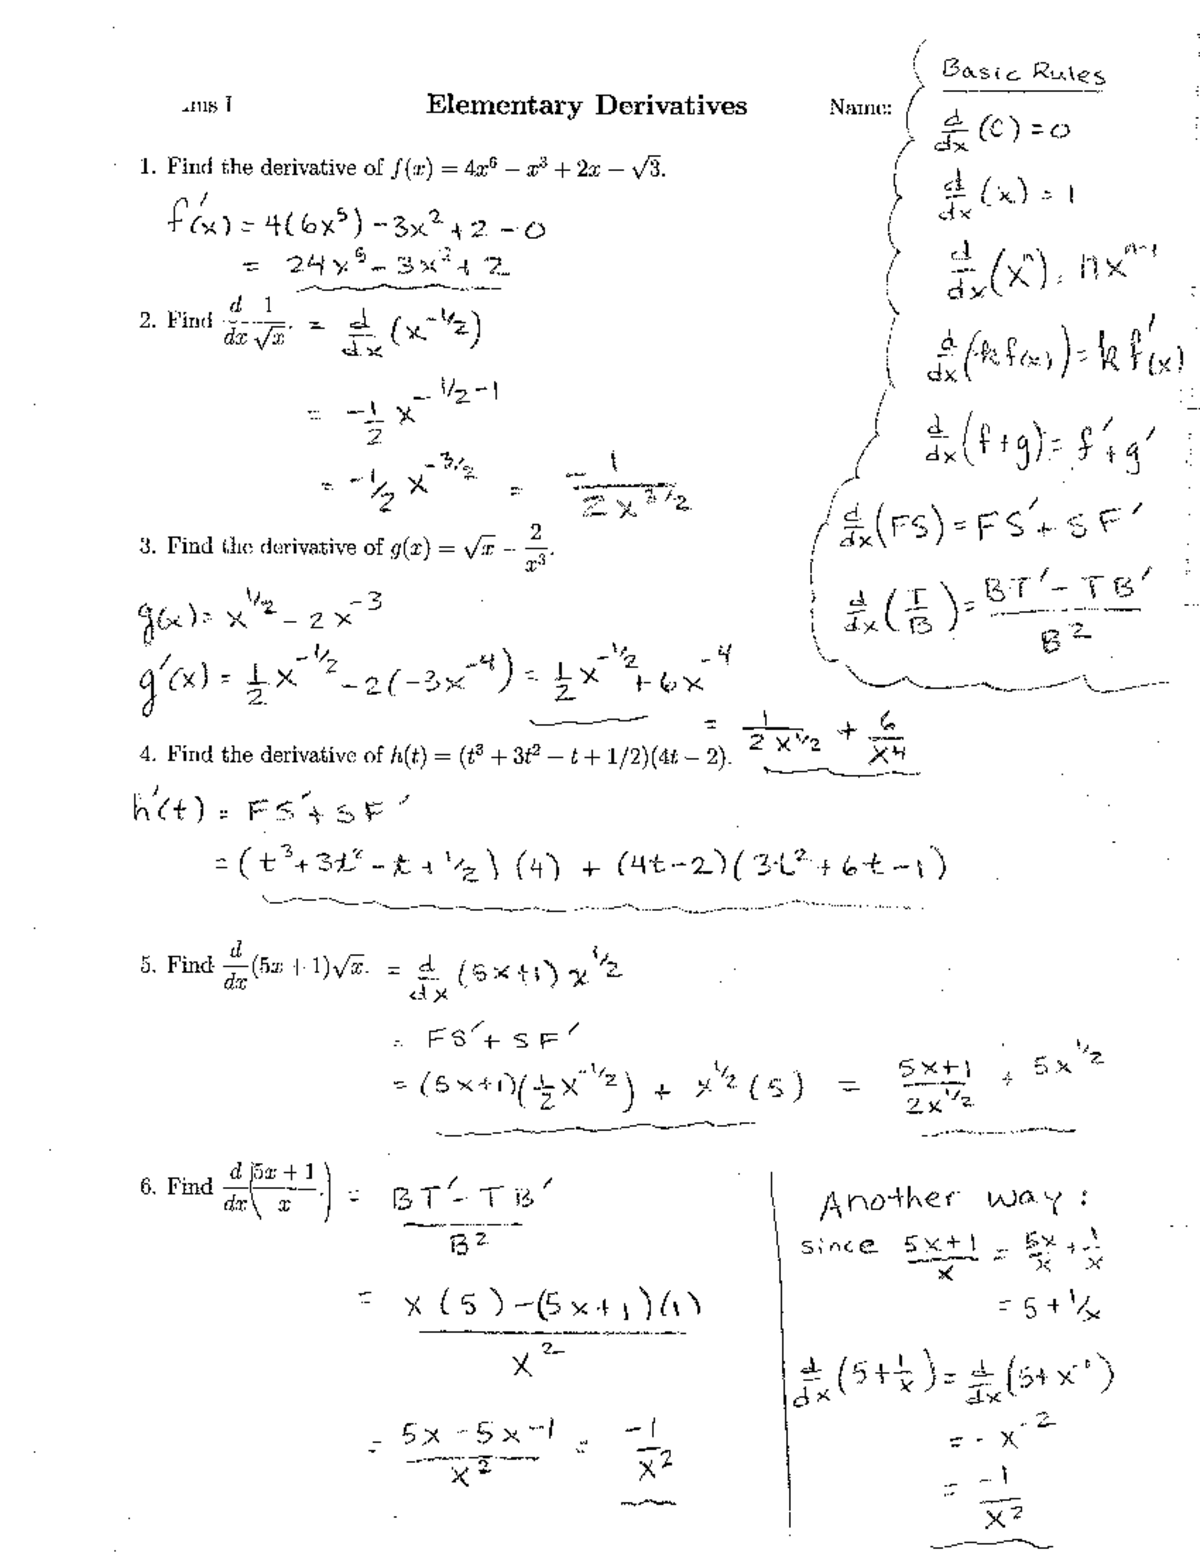 Elementary Derivatives Name:
Basic Rules
d/dx (C) = 0
d/dx (x) = 1
d/dx (xⁿ) = nxⁿ⁻¹
d/dx (kf(x)) = kf'(x)
d/dx (f+g) = f' + g'
d/dx (FS) = FS' + SF'
d/dx (T/B) = (BT' - TB')/B²
1. Find the derivative of f(x) = 4x⁶ − x³ + 2x − √3.
f'(x) = 4(6x⁵) - 3x² + 2 - 0
= 24x⁵ - 3x² + 2
2. Find d/dx 1/√x. = d/dx (x^(-1/2))
= -1/2 x^(-1/2-1)
= -1/2 x^(-3/2) = -1/(2x^(3/2))
3. Find the derivative of g(x) = √x − 2/x³.
g(x) = x^(1/2) - 2x⁻³
g'(x) = 1/2 x^(-1/2) - 2(-3x⁻⁴) = 1/2 x^(-1/2) + 6x⁻⁴
= 1/(2x^(1/2)) + 6/x⁴
4. Find the derivative of h(t) = (t³ + 3t² − t + 1/2)(4t − 2).
h'(t) = FS' + SF'
= (t³ + 3t² - t + 1/2)(4) + (4t-2)(3t² + 6t - 1)
5. Find d/dx (5x + 1)√x. = d/dx (5x+1) x^(1/2)
= FS' + SF'
= (5x+1)(1/2 x^(-1/2)) + x^(1/2) (5) = (5x+1)/(2x^(1/2)) + 5x^(1/2)
6. Find d/dx ((5x + 1)/x.) = (BT' - TB')/B²
= (x(5) - (5x+1)(1))/x²
= (5x - 5x - 1)/x² = -1/x²
Another way:
since (5x+1)/x = 5x/x + 1/x
= 5 + 1/x
d/dx (5 + 1/x) = d/dx (5 + x⁻¹)
= - x⁻²
= -1/x²